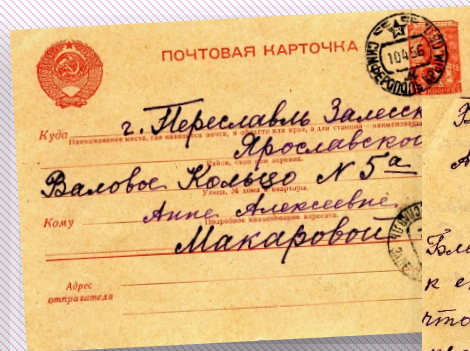 ПОЧТОВАЯ КАРТОЧКА
СИМФЕРОПОЛЬ
10456
Куда г. Переславль Залесск
Наименование места, где находится почта, и области или края, а для станций — наименован
Ярославской
Района, село или деревня.
Валовое Кольцо N 5а
Улица, № дома и квартиры.
Кому Анне Алексеевне
Подробное наименование адресата.
Макаровой
Адрес
отправителя
В
А
Бла
к е
что